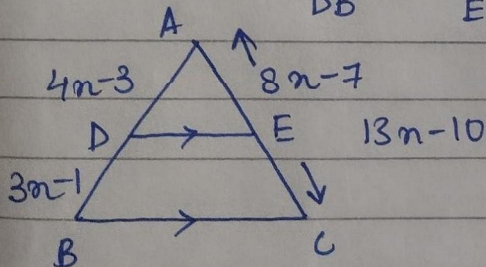 DB E
A
4x-3 8x-7
D E 13x-10
3x-1
B C